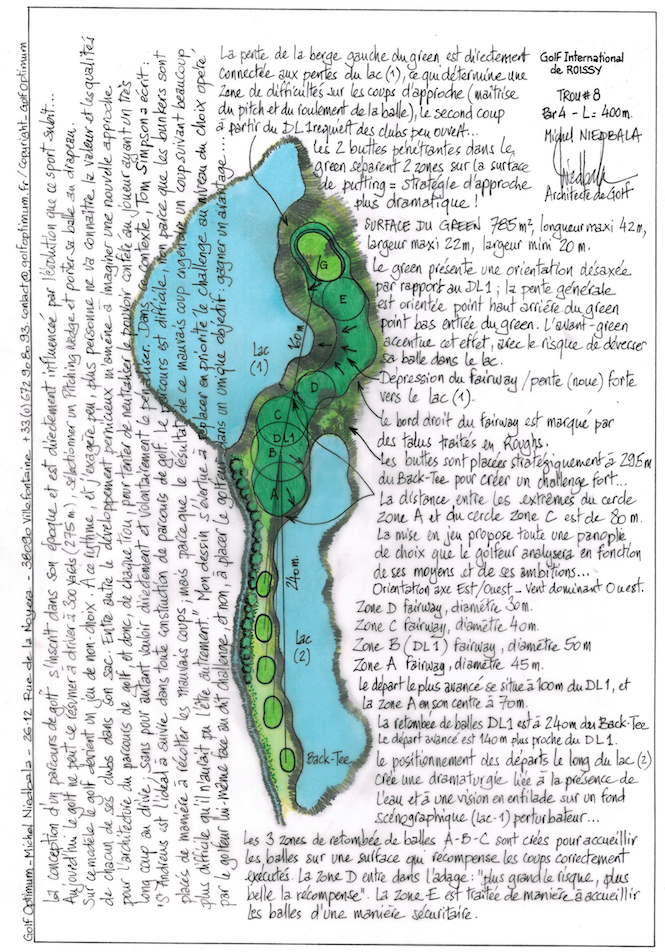 La pente de la berge gauche du green est directement
connectée aux pentes du lac (1), ce qui détermine une
zone de difficultés sur les coups d'approche (maîtrise
du pitch et du roulement de la balle), le second coup
à partir du DL1 requiert des clubs peu ouvert...
Les 2 buttes pénétrantes dans le
green séparent 2 zones sur la surface
de putting = stratégie d'approche
plus dramatique !
Golf International
de ROISSY
TROU #8
Par 4 - L = 400m.
Michel NIEDBALA
Architecte de Golf
SURFACE DU GREEN 785 m², longueur maxi 42m,
largeur maxi 22m, largeur mini 20 m.
Le green présente une orientation désaxée
par rapport au DL1 ; la pente générale
est orientée point haut arrière du green
point bas entrée du green. L'avant-green
accentue cet effet, avec le risque de déverser
sa balle dans le lac.
Dépression du Fairway / pente (noue) forte
vers le lac (1).
le bord droit du fairway est marqué par
des talus traités en Roughs.
Les buttes sont placées stratégiquement à 295m
du Back-Tee pour créer un challenge fort...
La distance entre les extrêmes du cercle
zone A et du cercle zone C est de 80 m.
La mise en jeu propose toute une panoplie
de choix que le golfeur analysera en fonction
de ses moyens et de ses ambitions...
Orientation axe Est/Ouest - Vent dominant Ouest.
Zone D fairway, diamètre 30m.
Zone C fairway, diamètre 40m.
Zone B (DL1) fairway, diamètre 50m
Zone A fairway, diamètre 45m.
Le départ le plus avancé se situe à 100m du DL1, et
la zone A en son centre à 70m.
La retombée de balles DL1 est à 240m du Back-Tee
Le départ avancé est 140m plus proche du DL1.
Le positionnement des départs le long du lac (2)
crée une dramaturgie liée à la présence de
l'eau et à une vision en enfilade sur un fond
scénographique (lac-1) perturbateur...
Les 3 zones de retombée de balles A-B-C sont créés pour accueillir
les balles sur une surface qui récompense les coups correctement
exécutés. La zone D entre dans l'adage: "plus grand le risque, plus
belle la récompense". La zone E est traitée de manière à accueillir
les balles d'une manière sécuritaire.
G
E
160m
Lac
(1)
D
C
DL1
B
A
240m
Lac
(2)
Back-Tee
Golf Optimum - Michel Niedbala - 26-12 rue de la - 38090 Villefontaine +33(0)672 90 80 93 contact@golfoptimum.fr / Copyright - Golf Optimum
La conception d'un parcours de golf s'inscrit dans son époque et est directement influencée par l'évolution que ce sport subit...
Aujourd'hui le golf ne peut se résumer à driver à 300 Yards (275 m), sélectionner un Pitching wedge et porter sa balle au drapeau.
Sur ce modèle le golf devient un jeu de non-choix. A ce rythme, et j'exagère peu, plus personne ne va connaître la valeur et les qualités
de chacun de ses clubs dans son sac. Entre autre le développement pernicieux m'amène à imaginer une nouvelle approche
pour l'architecture du parcours de golf et donc, de chaque trou, pour tenter de neutraliser le pouvoir conféré au joueur ayant un très
long coup au drive ; sans pour autant vouloir directement et volontairement le pénaliser. Dans ce contexte, Tom Simpson a écrit :
"St Andrews est l'idéal à suivre dans toute construction de parcours de golf. Le parcours est difficile, non parce que les bunkers sont
placés de manière à récolter les mauvais coups, mais parce que le résultat de ce mauvais coup engendre un coup suivant beaucoup
plus difficile qu'il n'aurait pu l'être autrement." Mon dessin s'évertue à replacer en priorité le challenge au niveau du choix opéré,
par le golfeur lui-même face au dit challenge et non, à placer le golfeur dans un unique objectif: gagner un avantage...